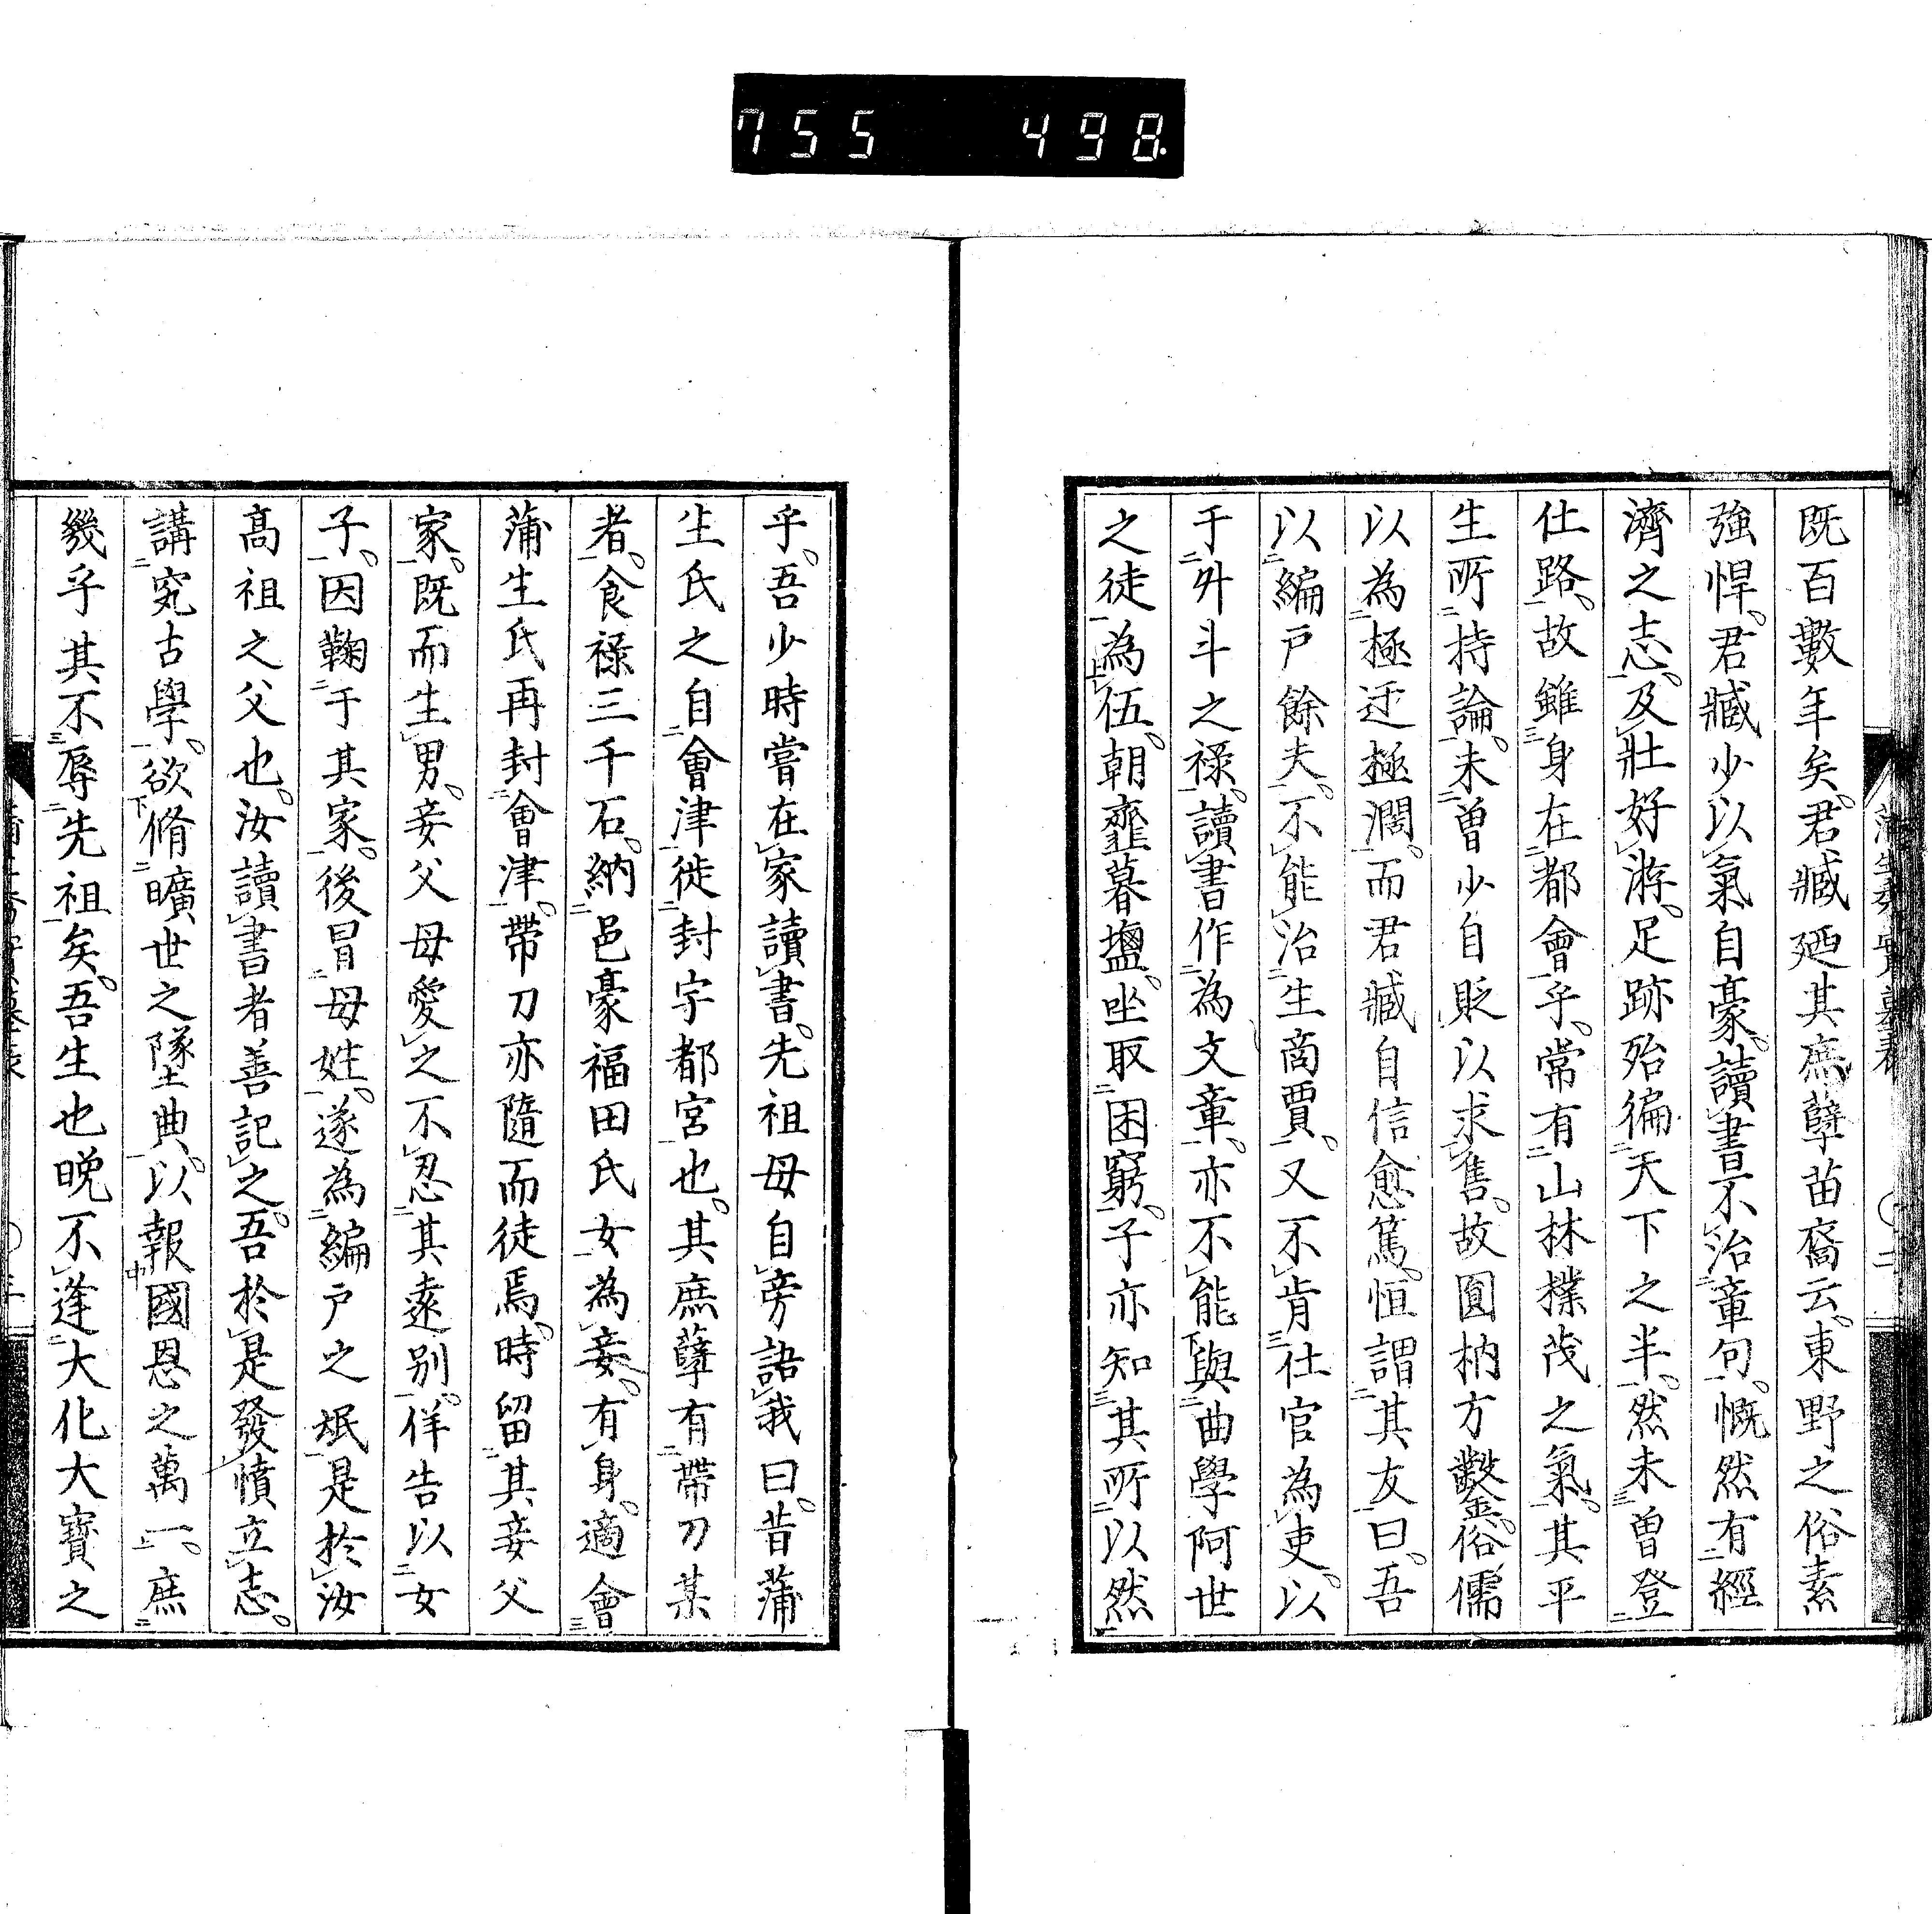 755 498
既百數年矣。君臧廼其庶孽苗裔云。東野之俗素
強悍。君臧少以氣自豪。讀書不治章句。慨然有經
濟之志。及壯好游。足跡殆徧天下之半。然未曾登
仕路。故雖身在都會乎。常有山林樸茂之氣。其平
生所持論。未曾少自貶以求售。故圓枘方鑿。俗儒
以為極迂極濶。而君臧自信愈篤。恒謂其友曰。吾
以編戶餘夫。不能治生商賈。又不肯仕官為吏。以
于升斗之祿。讀書作為文章。亦不能與曲學阿世
之徒為伍。朝虀暮鹽。坐取困窮。子亦知其所以然
乎。吾少時嘗在家讀書。先祖母自旁語我曰。昔蒲
生氏之自會津徙封宇都宮也。其庶孽有帶刀某
者。食祿三千石。納邑豪福田氏女為妾。有身。適會
蒲生氏再封會津。帶刀亦隨而徒焉。時留其妾父
家。既而生男。妾父母愛之不忍其遠別。佯告以女
子。因鞠于其家。後冒母姓。遂為編戶之氓。是於汝
高祖之父也。汝讀書者善記之。吾於是發憤立志。
講究古學。欲脩曠世之墜典。以報國恩之萬一。庶
幾乎其不辱先祖矣。吾生也晚不逢大化大寶之